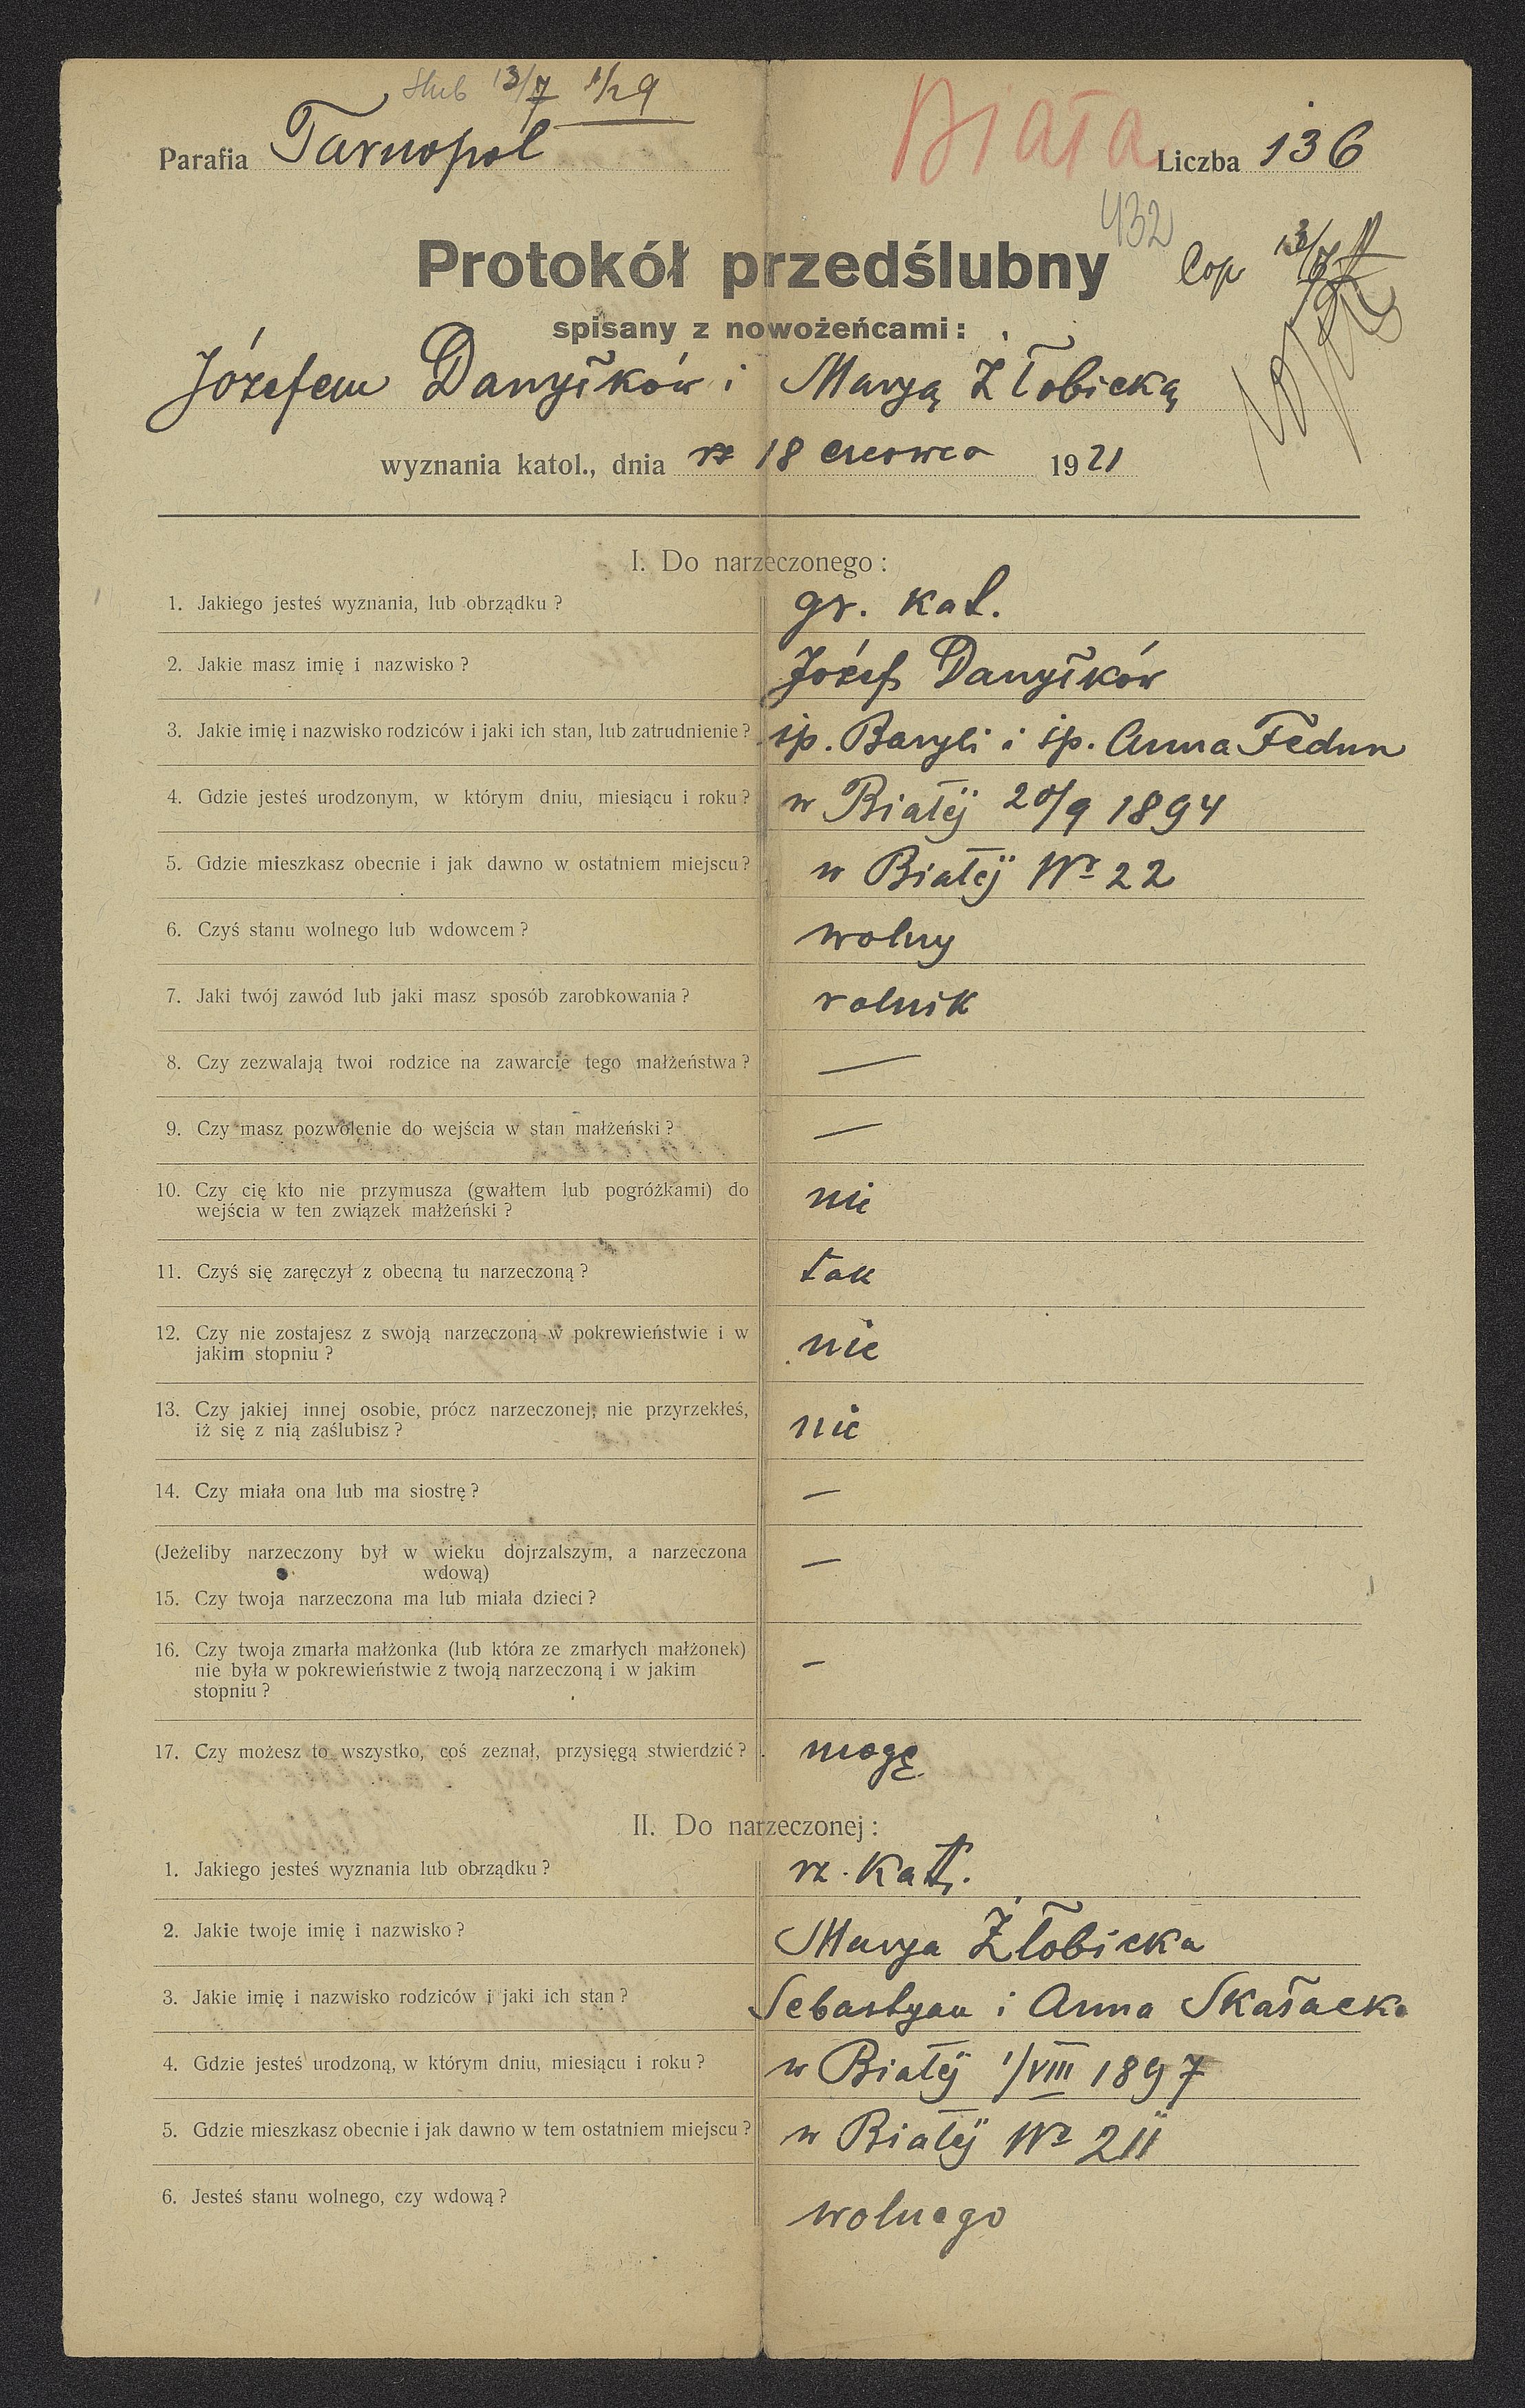 Ślub 13/7
Parafia Tarnopol
Biała
Liczba 136
432
Protokół przedślubny
Cop 13/7
spisany z nowożeńcami:
Józefem Danyłków i Maryą Żłobicką
wyznania katol., dnia rz 18 czerwca 1921
I. Do narzeczonego:
1. Jakiego jesteś wyznania, lub obrządku? gr. kat.
2. Jakie masz imię i nazwisko? Józef Danyłków
3. Jakie imię i nazwisko rodziców i jaki ich stan, lub zatrudnienie? śp. Baryli i śp. Anna Fedun
4. Gdzie jesteś urodzonym, w którym dniu, miesiącu i roku? w Białej 20/9 1894
5. Gdzie mieszkasz obecnie i jak dawno w ostatniem miejscu? w Białej Nr 22
6. Czyś stanu wolnego lub wdowcem? wolny
7. Jaki twój zawód lub jaki masz sposób zarobkowania? rolnik
8. Czy zezwalają twoi rodzice na zawarcie tego małżeństwa? —
9. Czy masz pozwolenie do wejścia w stan małżeński? —
10. Czy cię kto nie przymusza (gwałtem lub pogróżkami) do
wejścia w ten związek małżeński? nie
11. Czyś się zaręczył z obecną tu narzeczoną? tak
12. Czy nie zostajesz z swoją narzeczoną w pokrewieństwie i w
jakim stopniu? nie
13. Czy jakiej innej osobie, prócz narzeczonej, nie przyrzekłeś,
iż się z nią zaślubisz? nie
14. Czy miała ona lub ma siostrę? —
(Jeżeliby narzeczony był w wieku dojrzalszym, a narzeczona
wdową) —
15. Czy twoja narzeczona ma lub miała dzieci?
16. Czy twoja zmarła małżonka (lub która ze zmarłych małżonek)
nie była w pokrewieństwie z twoją narzeczoną i w jakim
stopniu? —
17. Czy możesz to wszystko, coś zeznał, przysięgą stwierdzić? mogę
II. Do narzeczonej:
1. Jakiego jesteś wyznania lub obrządku? rz. kat.
2. Jakie twoje imię i nazwisko? Marya Żłobicka
3. Jakie imię i nazwisko rodziców i jaki ich stan? Sebastyan i Anna Skałacka
4. Gdzie jesteś urodzoną, w którym dniu, miesiącu i roku? w Białej 1/VIII 1897
5. Gdzie mieszkasz obecnie i jak dawno w tem ostatniem miejscu? w Białej Nr 211
6. Jesteś stanu wolnego, czy wdową? wolnego